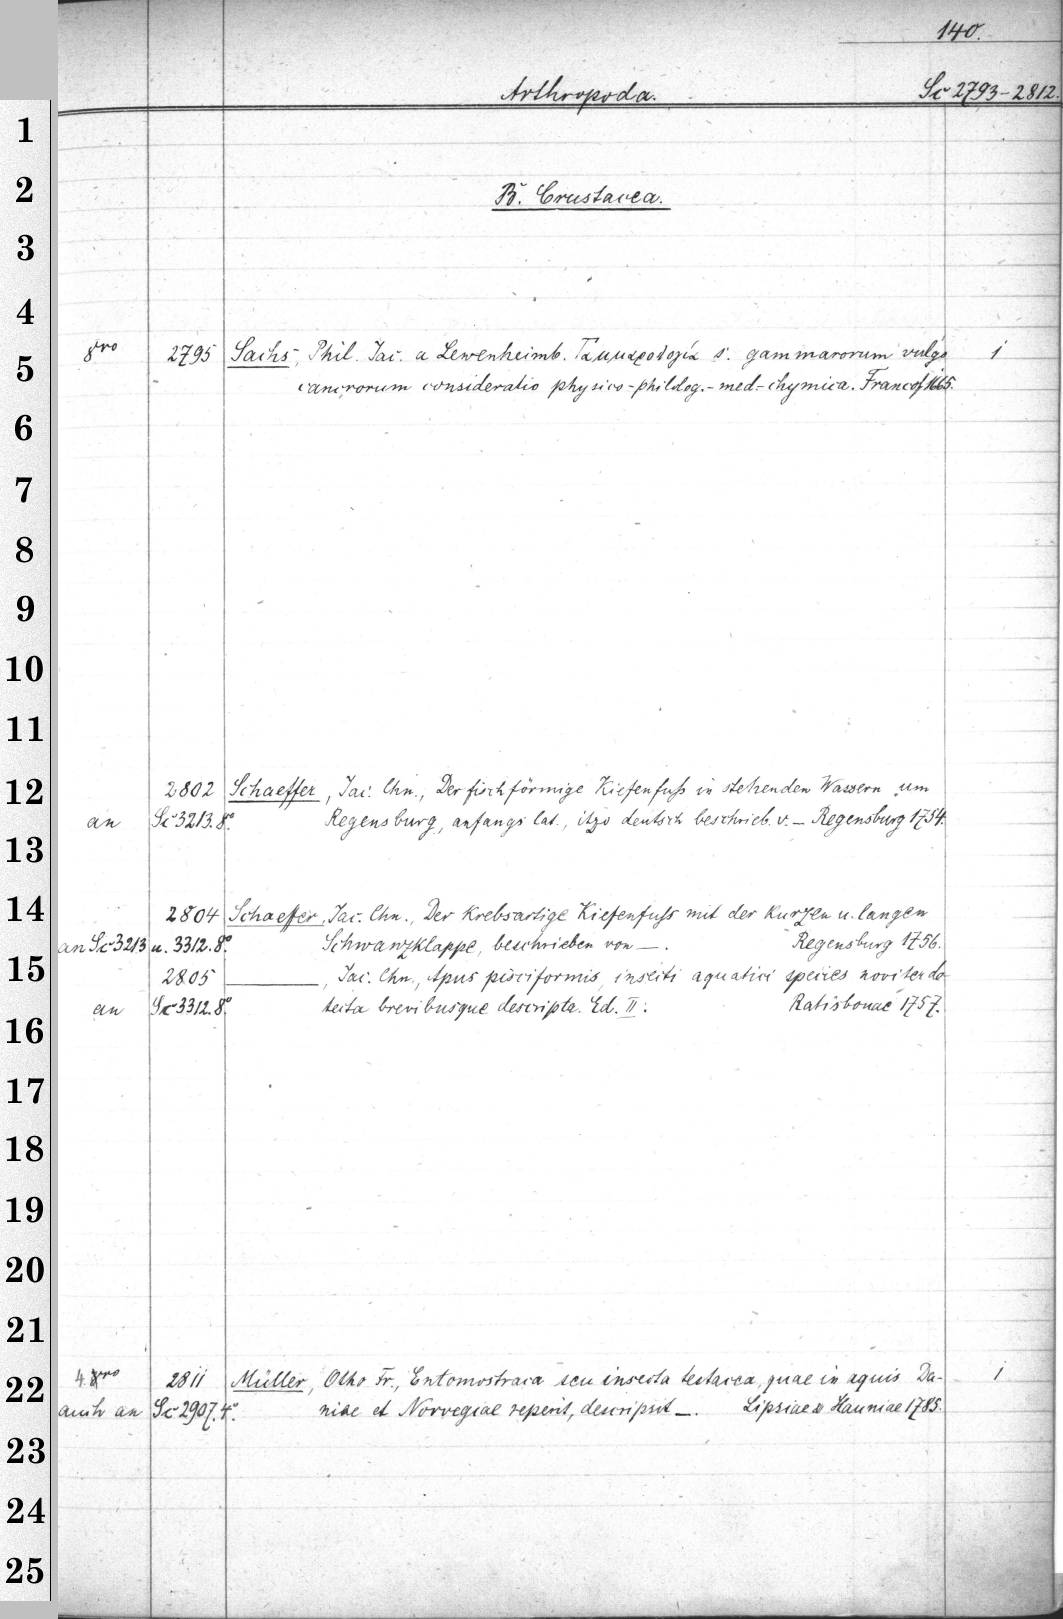 140.
Arthropoda. Sc 2793-2812.
B. Crustacea.
8vro 2795 Sachs, Phil. Jac. a Lewenheimb. Γαμμαρολογία s. gammarorum vulgo 1
cancrorum consideratio physico-philolog.-med-chymica. Francof. 1665.
2802 Schaeffer, Jac. Chn., Der fischförmige Kiefenfuſs in stehenden Wassern um
an Sc 3213. 8°. Regensburg, anfangs lat., itzo deutsch beschrieb. v. — Regensburg 1754.
2804 Schaeffer, Jac. Chn., Der Krebsartige Kiefenfuſs mit der kurzen u. langen
an Sc 3213 u. 3312. 8°. Schwanzklappe, beschrieben von —. Regensburg 1756.
2805 ———, Jac. Chn., Apus pisciformis, insecti aquatici species noviter de-
an Sc 3312. 8°. tecta brevibusque descripta. Ed. II. Ratisbonae 1757.
4. 2811 Müller, Otho Fr., Entomostraca seu insecta testacea, quae in aquis Da- 1
auch an Sc 2907. 4°. niae et Norvegiae reperit, descripsit —. Lipsiae & Hauniae 1785.
1
2
3
4
5
6
7
8
9
10
11
12
13
14
15
16
17
18
19
20
21
22
23
24
25